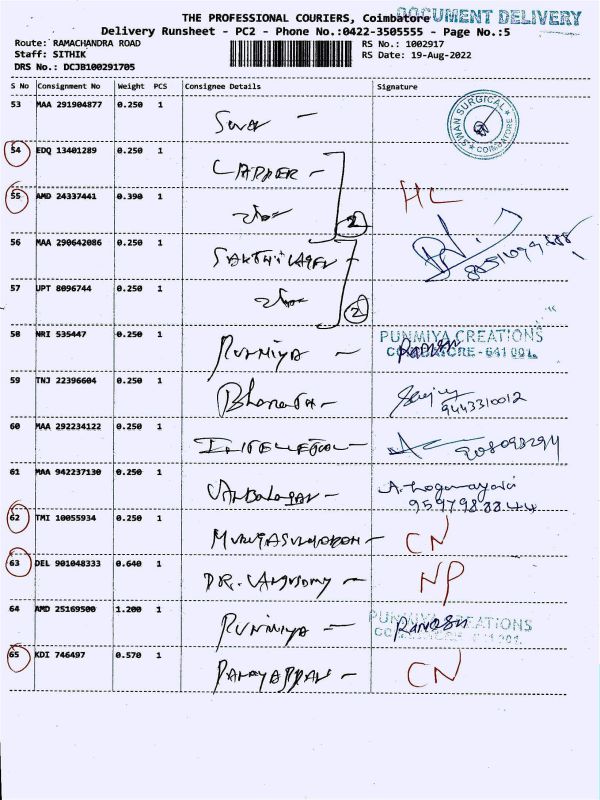 THE PROFESSIONAL COURIERS, Coimbatore DOCUMENT DELIVERY
Delivery Runsheet - PC2 - Phone No.:0422-3505555 - Page No.:5
Route: RAMACHANDRA ROAD RS No.: 1002917
Staff: SITHIK RS Date: 19-Aug-2022
DRS No.: DCJB100291705
S No Consignment No Weight PCS Consignee Details Signature
53 MAA 291904877 0.250 1
SWAN SURGICAL COIMBATORE
54 EDQ 13401289 0.250 1
55 AMD 24337441 0.390 1 HL
2
56 MAA 290642086 0.250 1
57 UPT 8096744 0.250 1
2
58 NRI 535447 0.250 1 PUNMIYA CREATIONS
Punmiya COIMBATORE - 641 001.
59 TNJ 22396604 0.250 1
Bharath 9443310012
60 MAA 292234122 0.250 1
61 MAA 942237130 0.250 1
62 TMI 10055934 0.250 1
CN
63 DEL 901048333 0.640 1
NP
64 AMD 25169500 1.200 1 PUNMIYA CREATIONS
Punmiya COIMBATORE - 641 001.
65 KDI 746497 0.570 1
CN